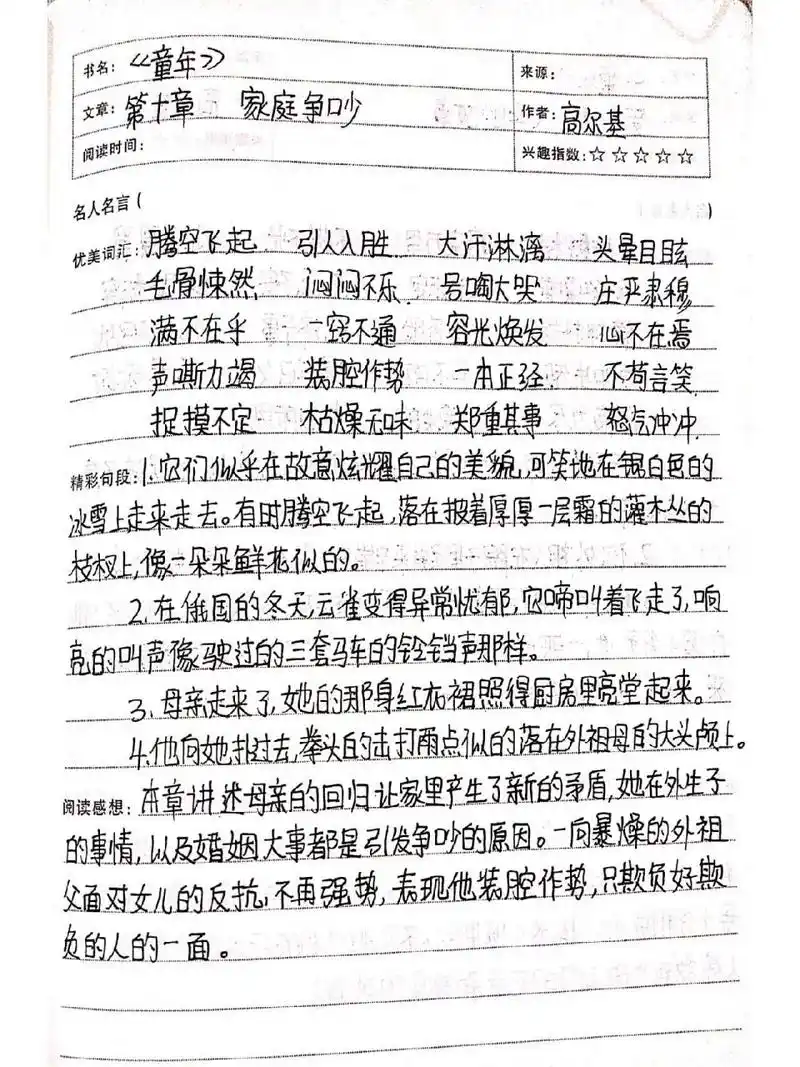 书名：《童年》
来源：
文章：第十章 家庭争吵
作者：高尔基
阅读时间：
兴趣指数：☆☆☆☆☆
名人名言（ ）
优美词汇：腾空飞起 引人入胜 大汗淋漓 头晕目眩
毛骨悚然 闷闷不乐 号啕大哭 庄严肃穆
满不在乎 一窍不通 容光焕发 心不在焉
声嘶力竭 装腔作势 一本正经 不苟言笑
捉摸不定 枯燥无味 郑重其事 怒气冲冲
精彩句段：1.它们似乎在故意炫耀自己的美貌,可笑地在银白色的
冰雪上走来走去。有时腾空飞起,落在披着厚厚一层霜的灌木丛的
枝杈上,像一朵朵鲜花似的。
2.在俄国的冬天,云雀变得异常忧郁,它啼叫着飞走了,响
亮的叫声像驶过的三套马车的铃铛声那样。
3.母亲走来了,她的那身红衣裙照得厨房里亮堂起来。
4.他向她扑过去,拳头的击打雨点似的落在外祖母的大头颅上。
阅读感想：本章讲述母亲的回归让家里产生了新的矛盾,她在外生子
的事情,以及婚姻大事者都是引发争吵的原因。一向暴燥的外祖
父面对女儿的反抗,不再强势,表现他装腔作势,只欺负好欺
负的人的一面。